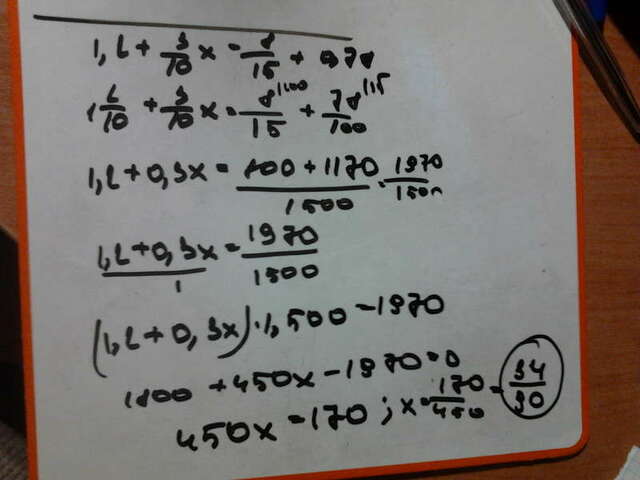 1,2 + 3/10 x = 8/15 + 0,78
1 2/10 + 3/10 x = 8/15 |100 + 78/100 |15
1,2 + 0,3x = 800 + 1170 / 1500 = 1970/1500
1,2 + 0,3x / 1 = 1970/1500
(1,2 + 0,3x) · 1,500 = 1970
1800 + 450x - 1970 = 0
450x = 170 ; x = 170/450 = 34/90